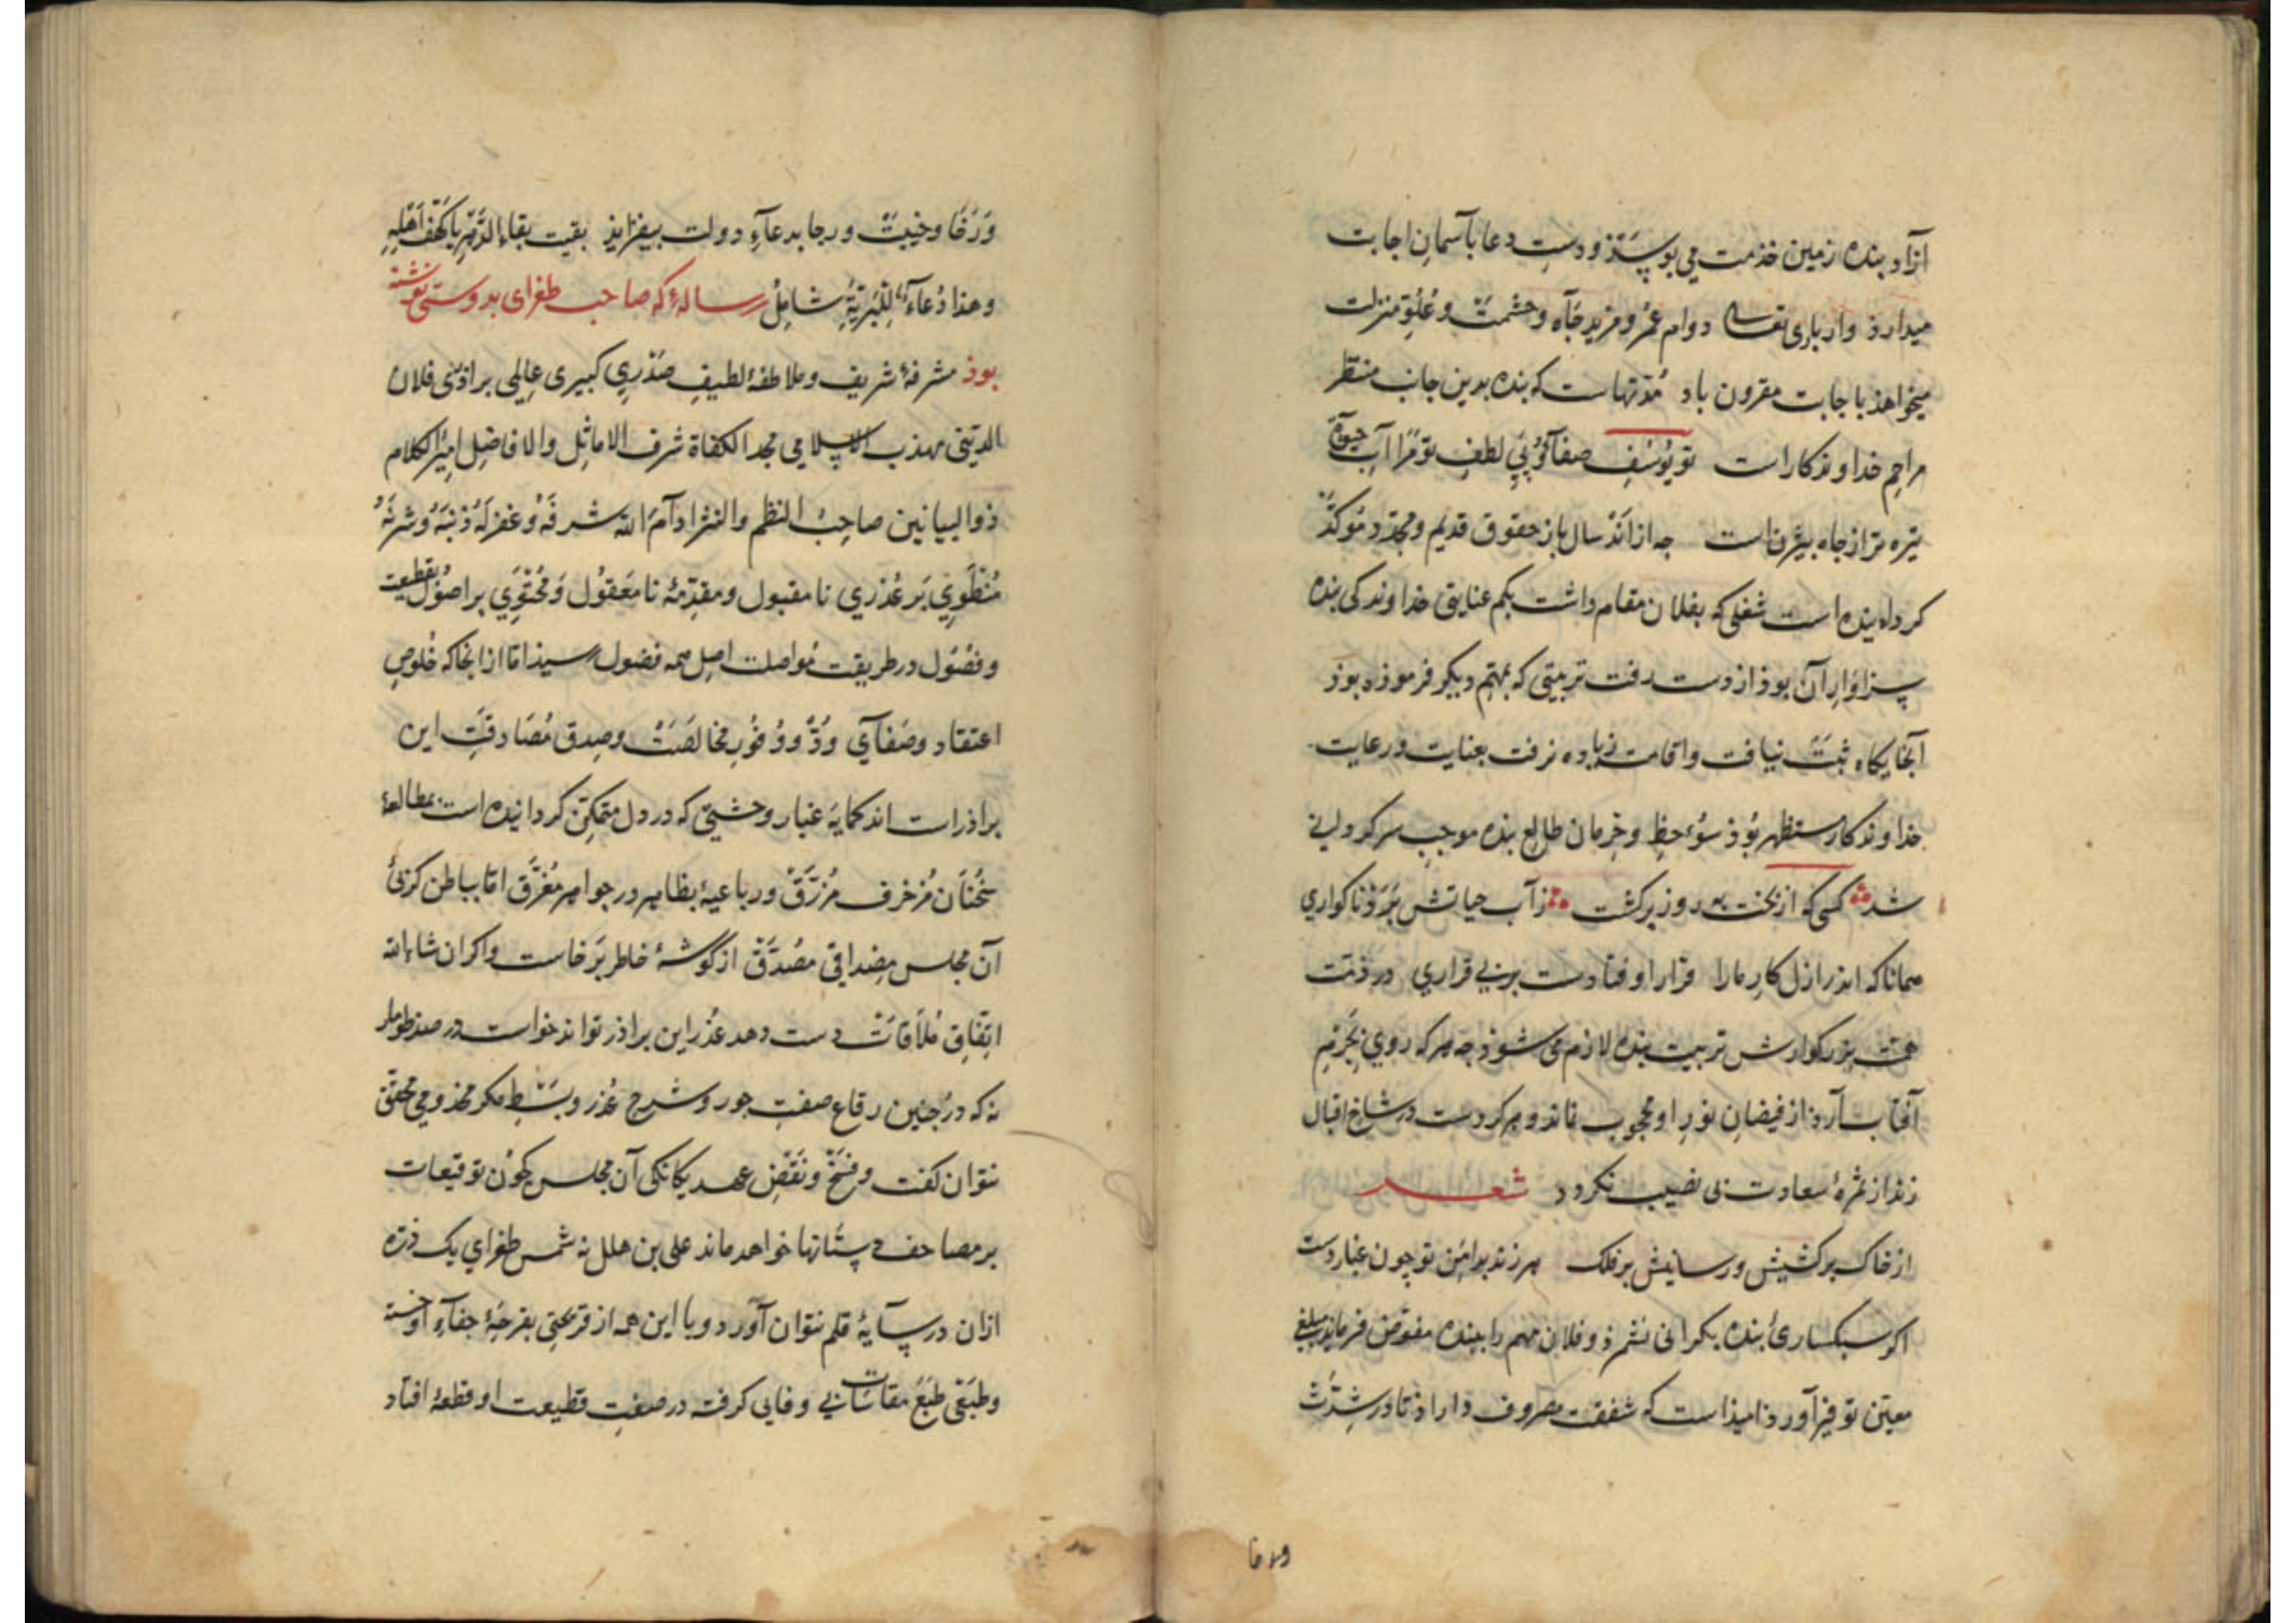 آزاد بنده زمین خدمت می بوسذ و دستِ دعا بآسمانِ اجابت
میدارذ واز باری تعالی دوام عُمر و مزید جَاه و حشمتْ و عُلُوِّ منزلت
میخواهذ باجابت مقرون باد مُدّتهاست که بنده بدین جانب منتظر
مراحمِ خداوندکاراست تو یُوسُفِ صفا کُو بیِ لطفِ تو مَرا آبِ حیوة
تیره تر از جاه بیژن است جه از اَنْد سال باز حقوق قدیم و مجدّد مُوَکدّ
کرداینده است شغلی که بفلان مقام داشت بحکم عنایتی خداوندکی بنده
سزاوارِ آن بوذ از دست رفت تربیتی که بمُهِّم دیکر فرموذه بوذ
آنجایکاه ثبَتْ نیافت واقامت زیاده نرفت بعنایت و رعایت
خداوندکار مستظهر بُوذ سُوء حظِ وخِرمان طالعِ بنده موجبِ سرکردانی
شد کسی که از بخت به روز برکشت زآب حیاتش بَرَوْذ ناکواری
همانا که اندر ازل کارِ مارا قرار اوفتادست بر بی قراری در ذمّت
همّت بزرکوارش تربیت بنده لازم می شوذ جه هرکه روی بجُرْمِ
آفتاب آرذ از فیضانِ نورِ او محجوب نماند و هرکه دست در شاخِ اقبال
زند از ثمرهٔ سعادت بی نصیب نکردد شعر
از خاک برکشیش و رسانیش بر فلک هر زند بدامَن تو چون غبار دست
اکر سبکساریٔ بنده بکرانی نشمرذ و فلان مهم را ببنده مفوّض فرمایذ مبلغی
معیّن توفیر آورد امیذاست که شفقت مصروف داراذ تا در شِدّتْ
ورخا
وَرَخَا وخیبَتْ و رجا بدعآءِ دولت بیفزایذ بقیت بقاءالدَّهْرِ یَا کَهْفَ اَهْلِهِ
وهذا دُعَآءٌ لِلْبَرِیَّةِ شامِلُ رسالهٔ که صاحب طغرای بدوستی نوشته
بوذ مشرفهٔ شریف و ملاطفهٔ لطیفِ صَدْرِی کبیری عالِمی براذَرْی فلان
الدّینی مهذب الاسلامی مجد الکفاة شرف الاماثِل والافاضِل امیرُالکلام
ذوالبیانین صاحِبُ النظم والنثر ادآمَ الله شرفَهُ وغفرلَهُ ذنبَهُ وشرّهُ
مُنْطَوِی بَر عُذری نامقبول ومقدّمهٔ نا مَعقوُل وَمُحْتَوِی بر اصوُل قطیعت
وفصُوُل در طریقت مُواصلت اصلِ همه فضول رسیذ امّا ازانجا که خُلوصِ
اعتقاد وصَفآیِ وُدّ و وُفوُرِ مخالَصَتْ وصِدق مُصَادقَتِ این
براذرات اندکمایهَ غبار وحشتی که در دل متمکّن کردانیده است بمطالعهٔ
سُخنَانِ مُزخرف مُزرَّقْ و رباعیهٔ بظاهر در جواهر مُغْرَّق امّا بباطن کرنیٔ
آن مجلس مِصْداقی مصُدَّقْ از کوشهٔ خاطر بَرخاست واکر ان شاءالله
اتّفاقِ مُلاقاتْ دست دهد عُذر این براذر تواند خواست در صد طومار
نه که در جُنین رقاع صفتِ جور و شرحِ عُذر وبَسْطِ مکر مخذومی محقّق
نتوان کفت و فسْخ ونَقْضِ عهد یکانکی آن مجلس کجُون توقیعات
بر مصاحف دستانها خواهد ماند علی بن هلل نه شمس طغرای یک ذرّه
ازان در سآیهٔ قلم نتوان آورد و با این همه از قریحتی بقرحهٔ جفآء آوخته
وطبقی طبَعْ مقاسَاتِ بی وفایی کرفته در صفتِ قطیعت او قطعهٔ افتاد